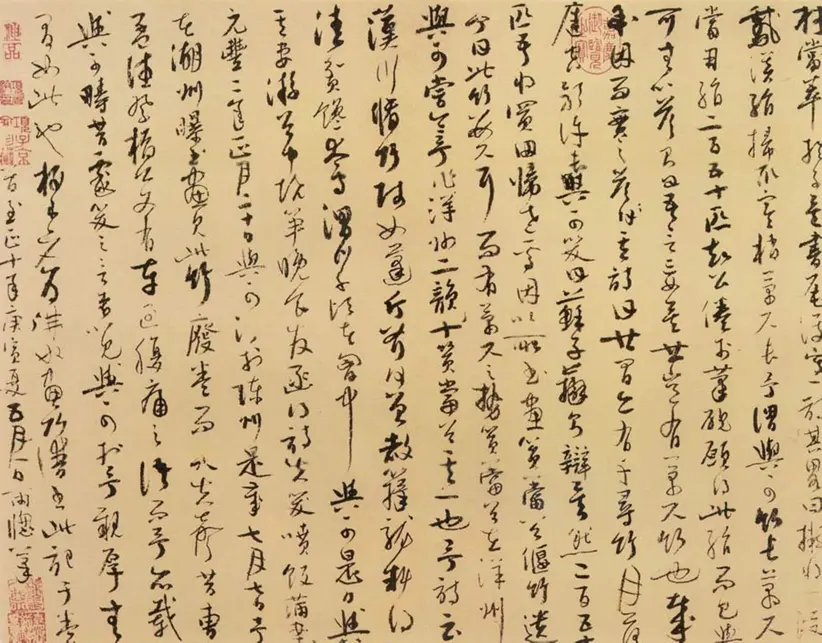 材當萃於子矣書尾復寫一詩其略曰擬將一段
鵝溪絹掃取寒梢萬尺長予謂與可竹長萬尺
當用絹二百五十匹知公倦於筆硯願得此絹而已與
可無以答則曰吾言妄矣世豈有萬尺竹也哉
余因而實之答其詩曰世間亦有千尋竹月落
庭空影許長與可笑曰蘇子辯則辯矣然二百五十
匹吾將買田歸老焉因以所畫篔簹谷偃竹遺
予曰此竹數尺耳而有萬尺之勢篔簹谷在洋州
與可嘗令予作洋州 十 篔簹谷其一也予詩云
漢川脩竹賤如蓬斤斧何曾赦籜龍料得
清貧饞太守渭川千畝在胸中 與可是日與
其妻游谷中燒筍晚食發函得詩失笑噴飯滿案
元豐二年正月二十日與可沒於陳州是歲七月七日予
在湖州曝書畫見此竹廢卷而哭失聲昔曹
孟德祭橋公文有車過腹痛之語而予亦載
與可疇昔戲笑之言者以見與可於予親厚無
間如此也
至正十年庚寅夏五月一日